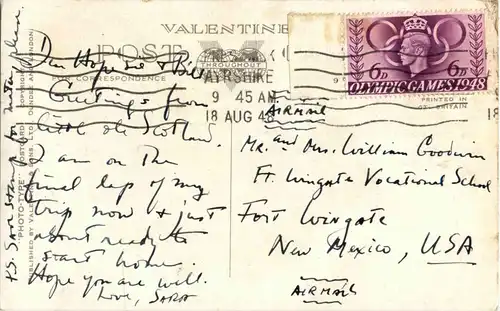 VALENTINE
POST
FOR CORRESPONDENCE
Dear Hope Sue & Bill,
Greetings from
little ole Scotland.
I am on the
final lap of my
trip now & just
about ready to
start home.
Hope you are well.
Love, SARA
P.S. Save stamp for me
PUBLISHED BY VALENTINE & SONS, LTD., DUNDEE AND LONDON
"PHOTO-TYPE" POSTCARD
THROUGHOUT
AYRSHIRE
9 45 AM
18 AUG 48
6D 6D
OLYMPIC GAMES 1948
PRINTED IN
GT. BRITAIN
AIRMAIL
Mr. and Mrs. William Goodwin
Ft. Wingate Vocational School
Fort Wingate
New Mexico, USA
AIRMAIL